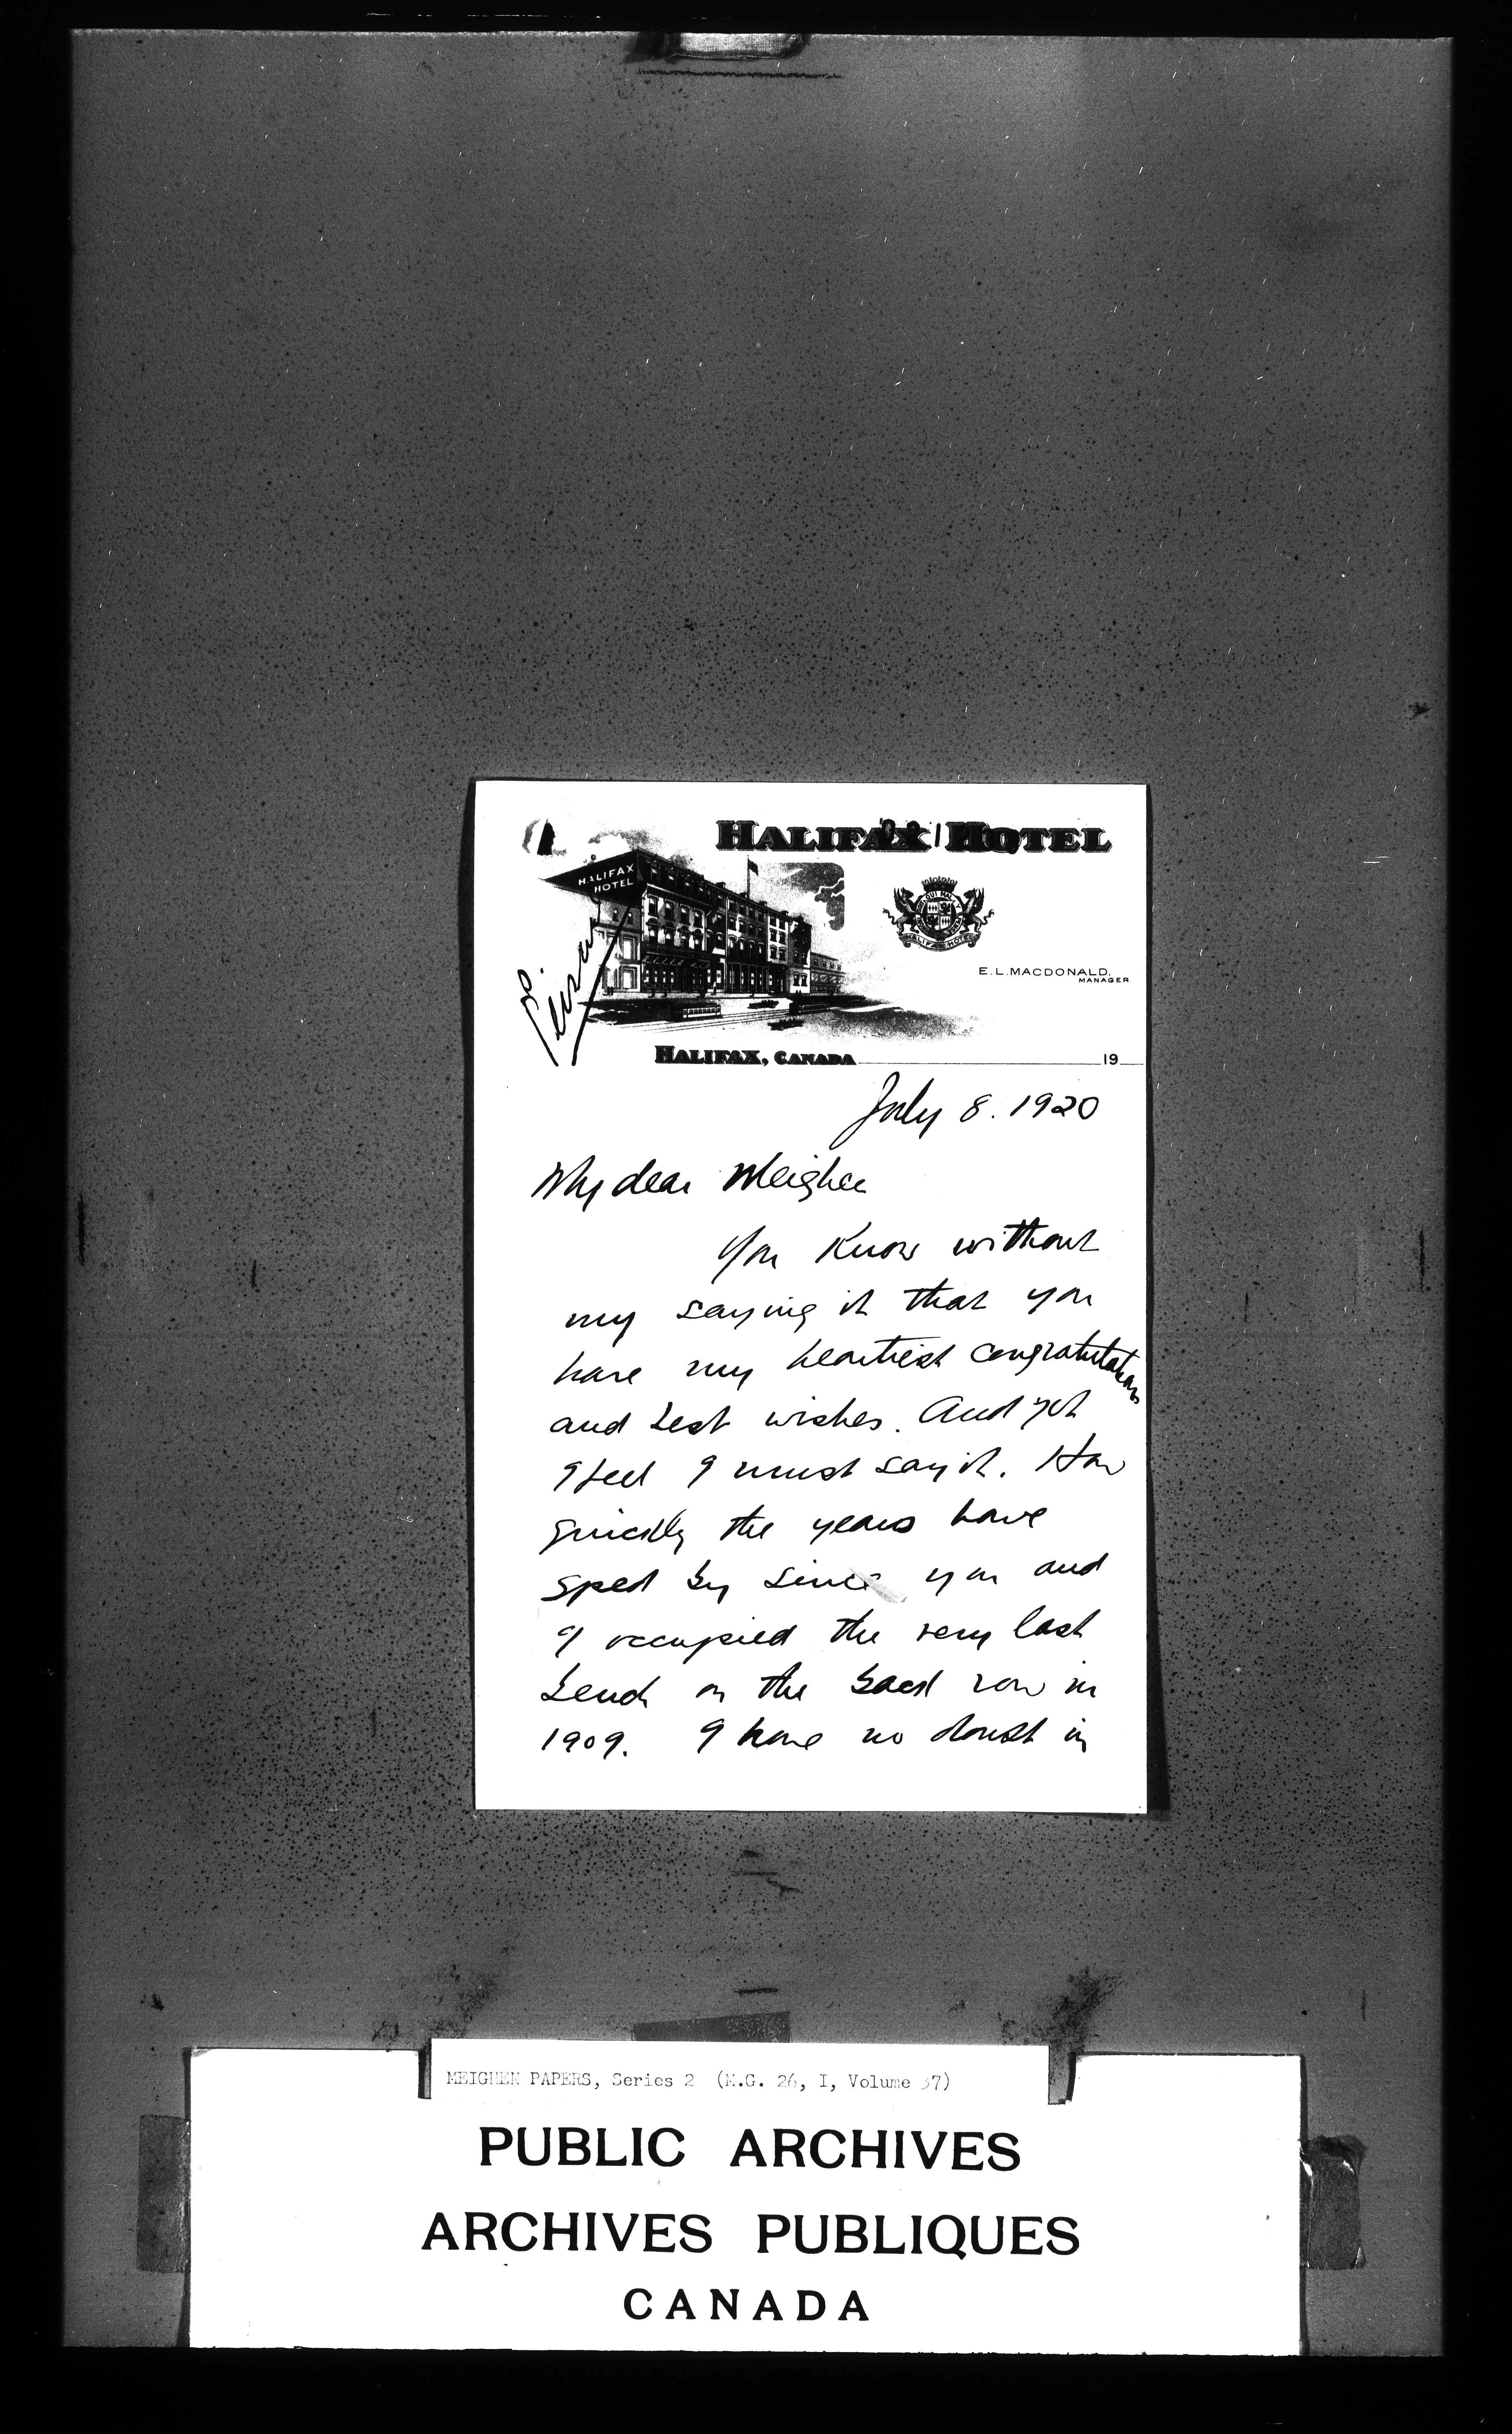 HALIFAX HOTEL
HALIFAX
HOTEL
E. L. MACDONALD.
MANAGER
HALIFAX, CANADA 19
July 8. 1920
My dear Meighen
You know without
my saying it that you
have my heartiest congratulations
and best wishes. And yet
I feel I must say it. How
quickly the years have
sped by since you and
I occupied the very last
bench on the back row in
1909. I have no doubt in
MEIGHEN PAPERS, Series 2 (M.G. 26, I, Volume 37)
PUBLIC ARCHIVES
ARCHIVES PUBLIQUES
CANADA